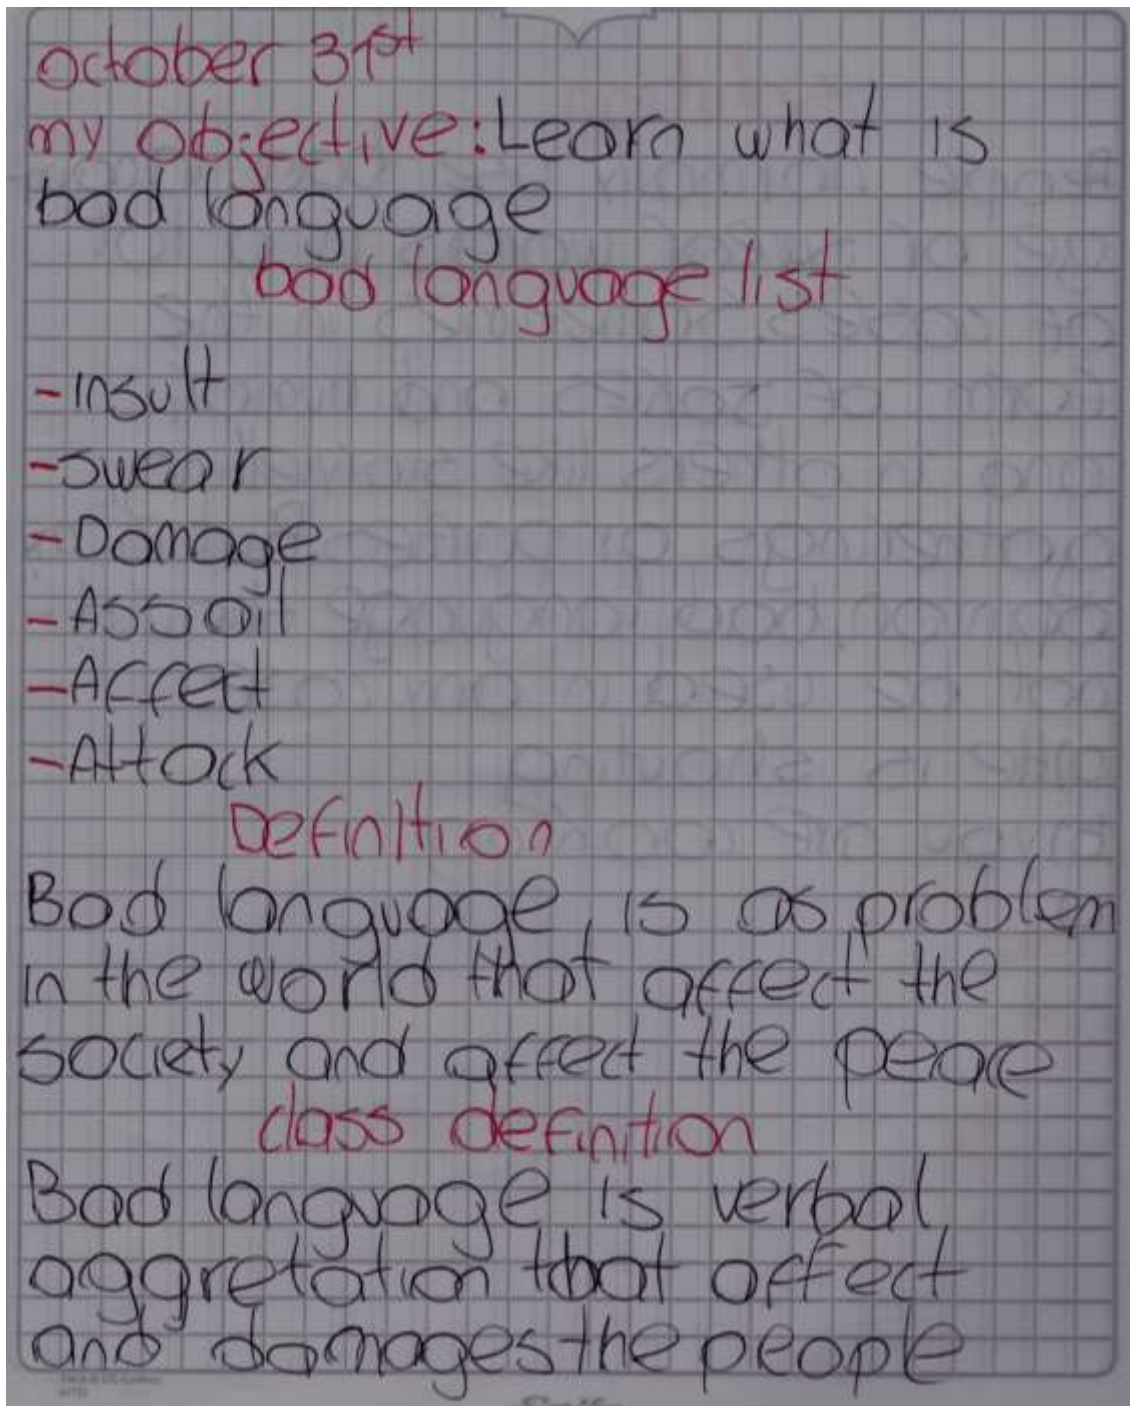 october 31st
my objective: Learn what is
bad language
bad language list
- Insult
- swear
- Damage
- Assail
- Affect
- Attack
Definition
Bad language, is as problem
in the world that affect the
society and affect the peace
class definition
Bad language is verbal
aggretation that affect
and damages the people